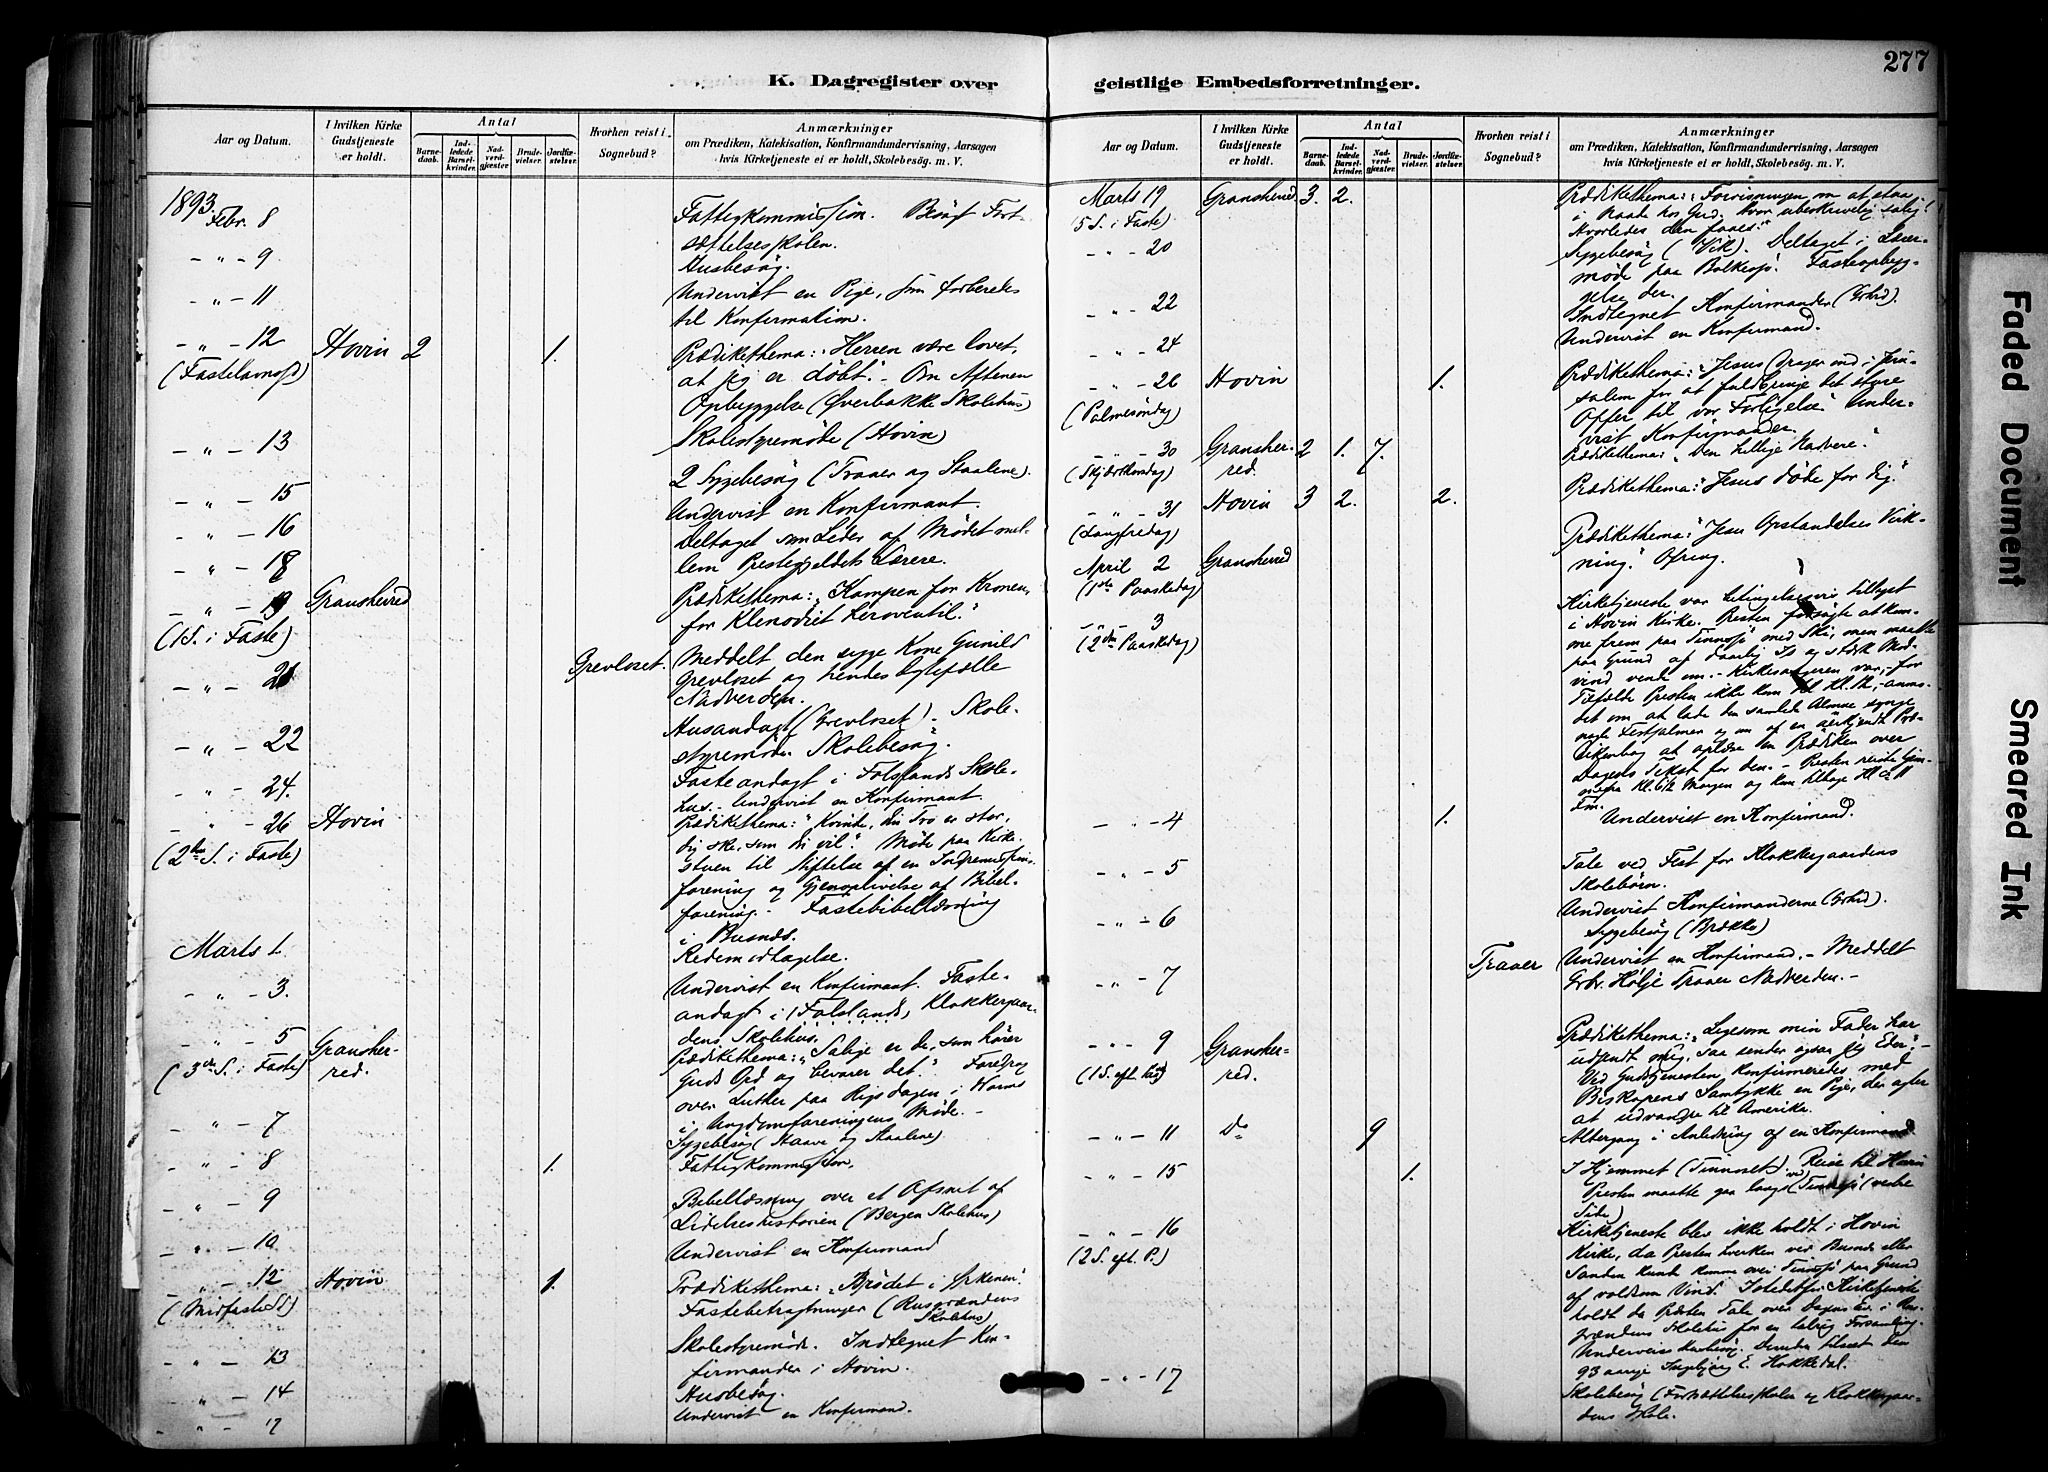 277
K. Dagregister over
Aar og Datum.
I hvilken Kirke Gudstjeneste er holdt.
Antal
Barnedaab.
Indledede Barselkvinder.
Nadverdgjæster
Brudevielser.
Jordfæstelser.
Hvorhen reist i Sognebud?
Anmærkninger
om Prædiken, Katekisation, Konfirmandundervisning, Aarsagen
hvis Kirketjeneste ei er holdt, Skolebesøg. m. V.
1893.
Febr. 8 Fattigkommission. Besøgt Fort-
sættelsesskolen.
- " - 9 Husbesøg.
- " - 11 Undervist en Pige, som forberedes
til Konfirmation.
- " - 12 Hovin 2 1. Prædikethema: "Herren være lovet,
(Fastelavnsd) at jeg er døbt." - Om Aftenen
Opbyggelse (Øverbakke Skolehus)
- " - 13 Skolestyremøde (Hovin)
2 Sygebesøg (Traaer og Staalene).
- " - 15 Undervist en Konfirmant.
- " - 16 Deltaget som Leder af Mødet mel-
- " - 18 lem Prestegjeldets Lærere.
- " - 19 Gransherred Prædikethema: "Kampen for Kronen,
(1S. i Faste) for Klenodiet heroventil."
- " - 21 Grevloset. Meddelt den syge Kone Gunild
Grevloset og hendes Ægtefælle
Nadverden.
- " - 22 Husandagt (Grevloset). Skole-
styremøde. Skolebesøg.
- " - 24. Fasteandagt i Folslands Skole-
hus. - Undervist en Konfirmant
- " - 26 Hovin Prædikethema: "Kvinde, din Tro er stor,
(2den S. i Faste) dig ske, som du vil". Møde paa Kirke-
stuen til Stiftelse af en Indremissions-
forening og Gjenoplivelse af Bibel-
forening. - Fastebibellæsning
i Busnes.
Marts 1. Redemodtagelse.
- " - 3. Undervist en Konfirmant. Faste-
andagt i Folslands, Klokkergaar-
dens Skolehus.
- " - 5 Gransher- Prædikethema: "Salige er de, som hører
(3die S. i Faste) red. Guds Ord og bevarer det." Foredrag
over Luther paa Rigsdagen i Worms
i Ungdomsforeningens Møde. -
- " - 7 Sygebesøg (Haave og Staalene)
- " - 8 1. Fattigkommission.
- " - 9 Bibellæsning over et Afsnit af
Lidelseshistorien (Bergen Skolehus)
- " - 10 Undervist en Konfirmand
- " - 12 Hovin 1. Prædikethema: "Brødet i Ørkenen."
(Midfaste S) Fastebetragtninger (Rusgrændens
Skolehus)
- " - 13 Skolestyremøde. Indtegnet Kon-
firmander i Hovin.
- " - 14 Husbesøg.
- " - 17 Undervist en Konfirmand.
geistlige Embedsforretninger.
Aar og Datum.
I hvilken Kirke Gudstjeneste er holdt.
Antal
Barnedaab.
Indledede Barselkvinder.
Nadverdgjæster
Brudevielser.
Jordfæstelser.
Hvorhen reist i Sognebud?
Anmærkninger
om Prædiken, Katekisation, Konfirmandundervisning, Aarsagen
hvis Kirketjeneste ei er holdt, Skolebesøg. m. V.
Marts 19 Gransherred 3. 2. Prædikethema: "Forvisningen om at staa
(5 S. i Faste) i Naade hos Gud. Hvor ubeskrivelig salig!
Hvorledes den faaes."
- " - 20 Sygebesøg (Vik). Deltaget i Lærer-
møde paa Bolkesjø. Fasteopbyg-
gelse der.
- " - 22 Indtegnet Konfirmander (Grhrd).
- " - 24 Undervist en Konfirmand.
- " - 26 Hovin 1. Prædikethema: "Jesus drager ind i Jeru-
(Palmesøndag) salem for at fuldbringe det store
Offer til vor Forligelse." Under-
vist Konfirmander.
- " - 30 Gransher- 2 1. 7. Prædikethema: "Den hellige Nadvere."
(Skjærthorsdag) red.
- " - 31 Hovin 3 2. 2. Prædikethema: "Jesus døde for dig."
(Langfredag)
April 2 Gransherred Prædikethema: "Jesu Opstandelses Virk-
(1ste Paaskedag) ning." Ofring.
- " - 3 Kirketjeneste var betingelsesvis tillyst
(2den Paaskedag) i Hovin Kirke. Presten forsøgte at kom-
me frem paa Tinnosjø med Ski, men maatte
paa Grund af daarlig Is og stærk Mod-
vind vende om. - Kirkesangeren var, - for
Tilfælde Presten ikke kom til Kl. 12, - anmo-
det om at lade den samlede Almue synge
nogle Festsalmer og om af en anerkjendt Præ-
dikenbog at oplæse en Prædiken over
Dagens Tekst for den. - Presten reiste hjem-
mefra Kl. 6½ Morgen og kom tilbage Kl. 11
Fm.
- " - 4 1. Undervist en Konfirmand.
- " - 5 Tale ved Fest for Klokkergaardens
Skolebørn.
- " - 6 Undervist Konfirmanderne (Grhrd).
Sygebesøg (Brække)
- " - 7 Traaer Undervist en Konfirmand. - Meddelt
Gbr. Hølje Traaer Nadverden. -
- " - 9 Gransher- Prædikethema: "Ligesom min Fader har
(1 S. eft. Paaske) red. udsendt mig, saa sender ogsaa jeg Eder." -
Ved Gudstjenesten konfirmeredes med
Biskopens Samtykke en Pige, der agter
at udvandre til Amerika.
- " - 11 Do 9 Altergang i Anledning af en Konfirmand
- " - 15 1. I Hjemmet (Tinnoset) ved Reise til Hovin
Presten maatte gaa langs Tinnsjø (vestre
Side)
- " - 16 Kirketjeneste blev ikke holdt i Hovin
(2 S. eft. P.) Kirke, da Presten hverken ved Busnes eller
Sanden kunde komme over Tinnosjø paa Grund
af voldsom Vind. Istedetfor Kirketjeneste
holdt da Presten Tale over Dagens Ev. i Rus-
grændens Skolehus for en talrig Forsamling.
Underveis Husbesøg. Derunder tilseet den
93 aarige Ingebjørg E. Hakkedal.
- " - 17 Skolebesøg (Fortsættelsesskolen og Klokkergaar-
dens Skole.
Faded Document
Smeared Ink